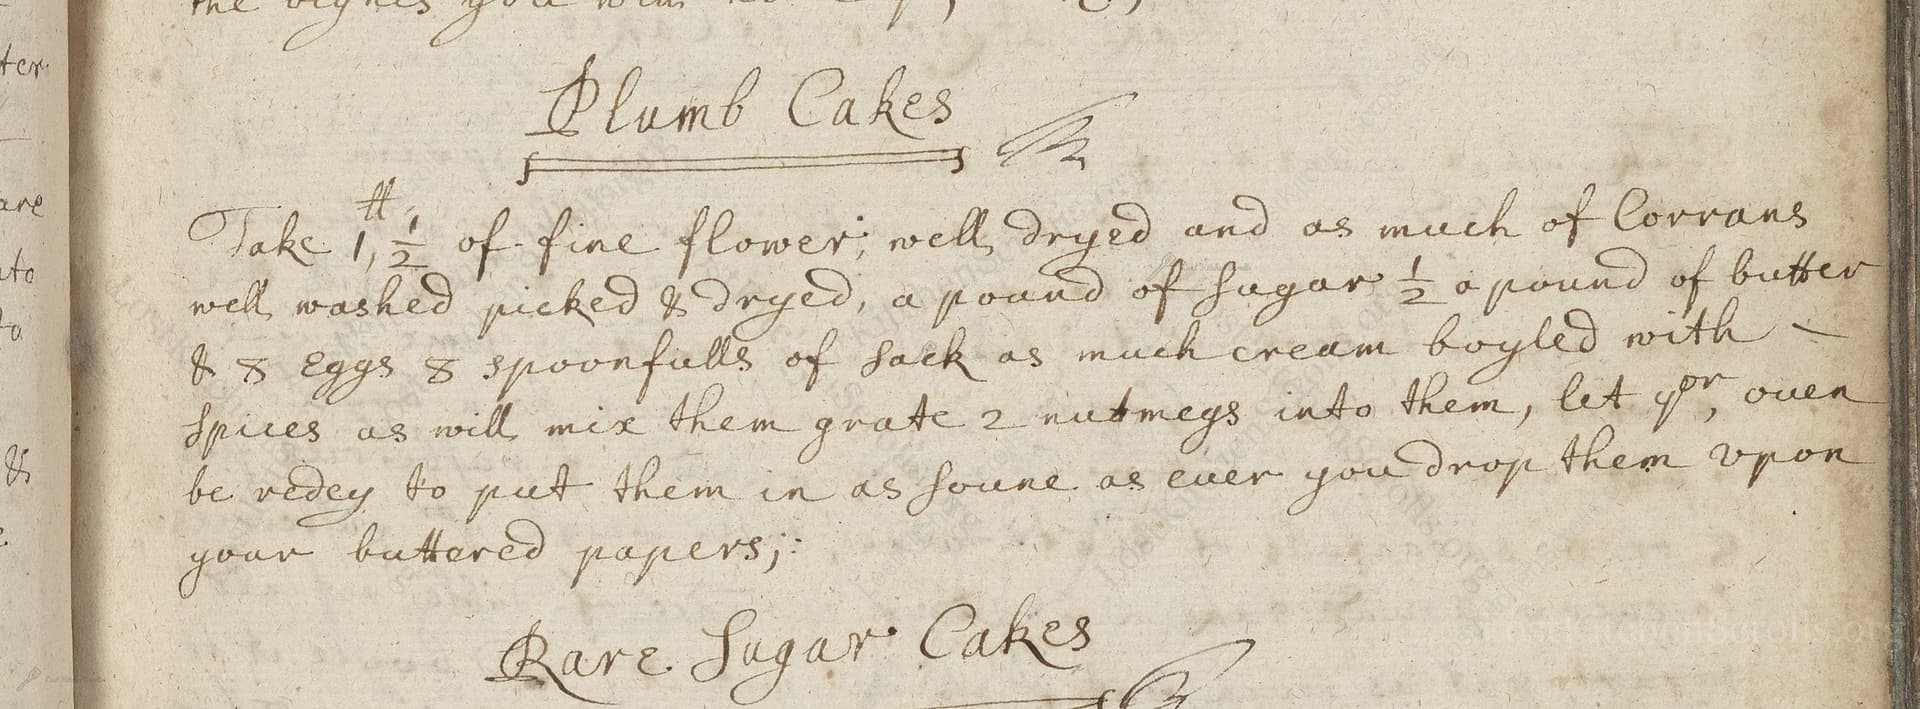 Plumb Cakes
Take 1, 1/2 ℔ of fine flower; well dryed and as much of Corrans
well washed picked & dryed, a pound of sugar 1/2 a pound of butter
& 8 Eggs 8 spoonfulls of sack as much cream boyled with
spices as will mix them grate 2 nutmegs into them, let yor, ouen
be redey to put them in as soune as euer you drop them vpon
your buttered papers;
Rare Sugar Cakes